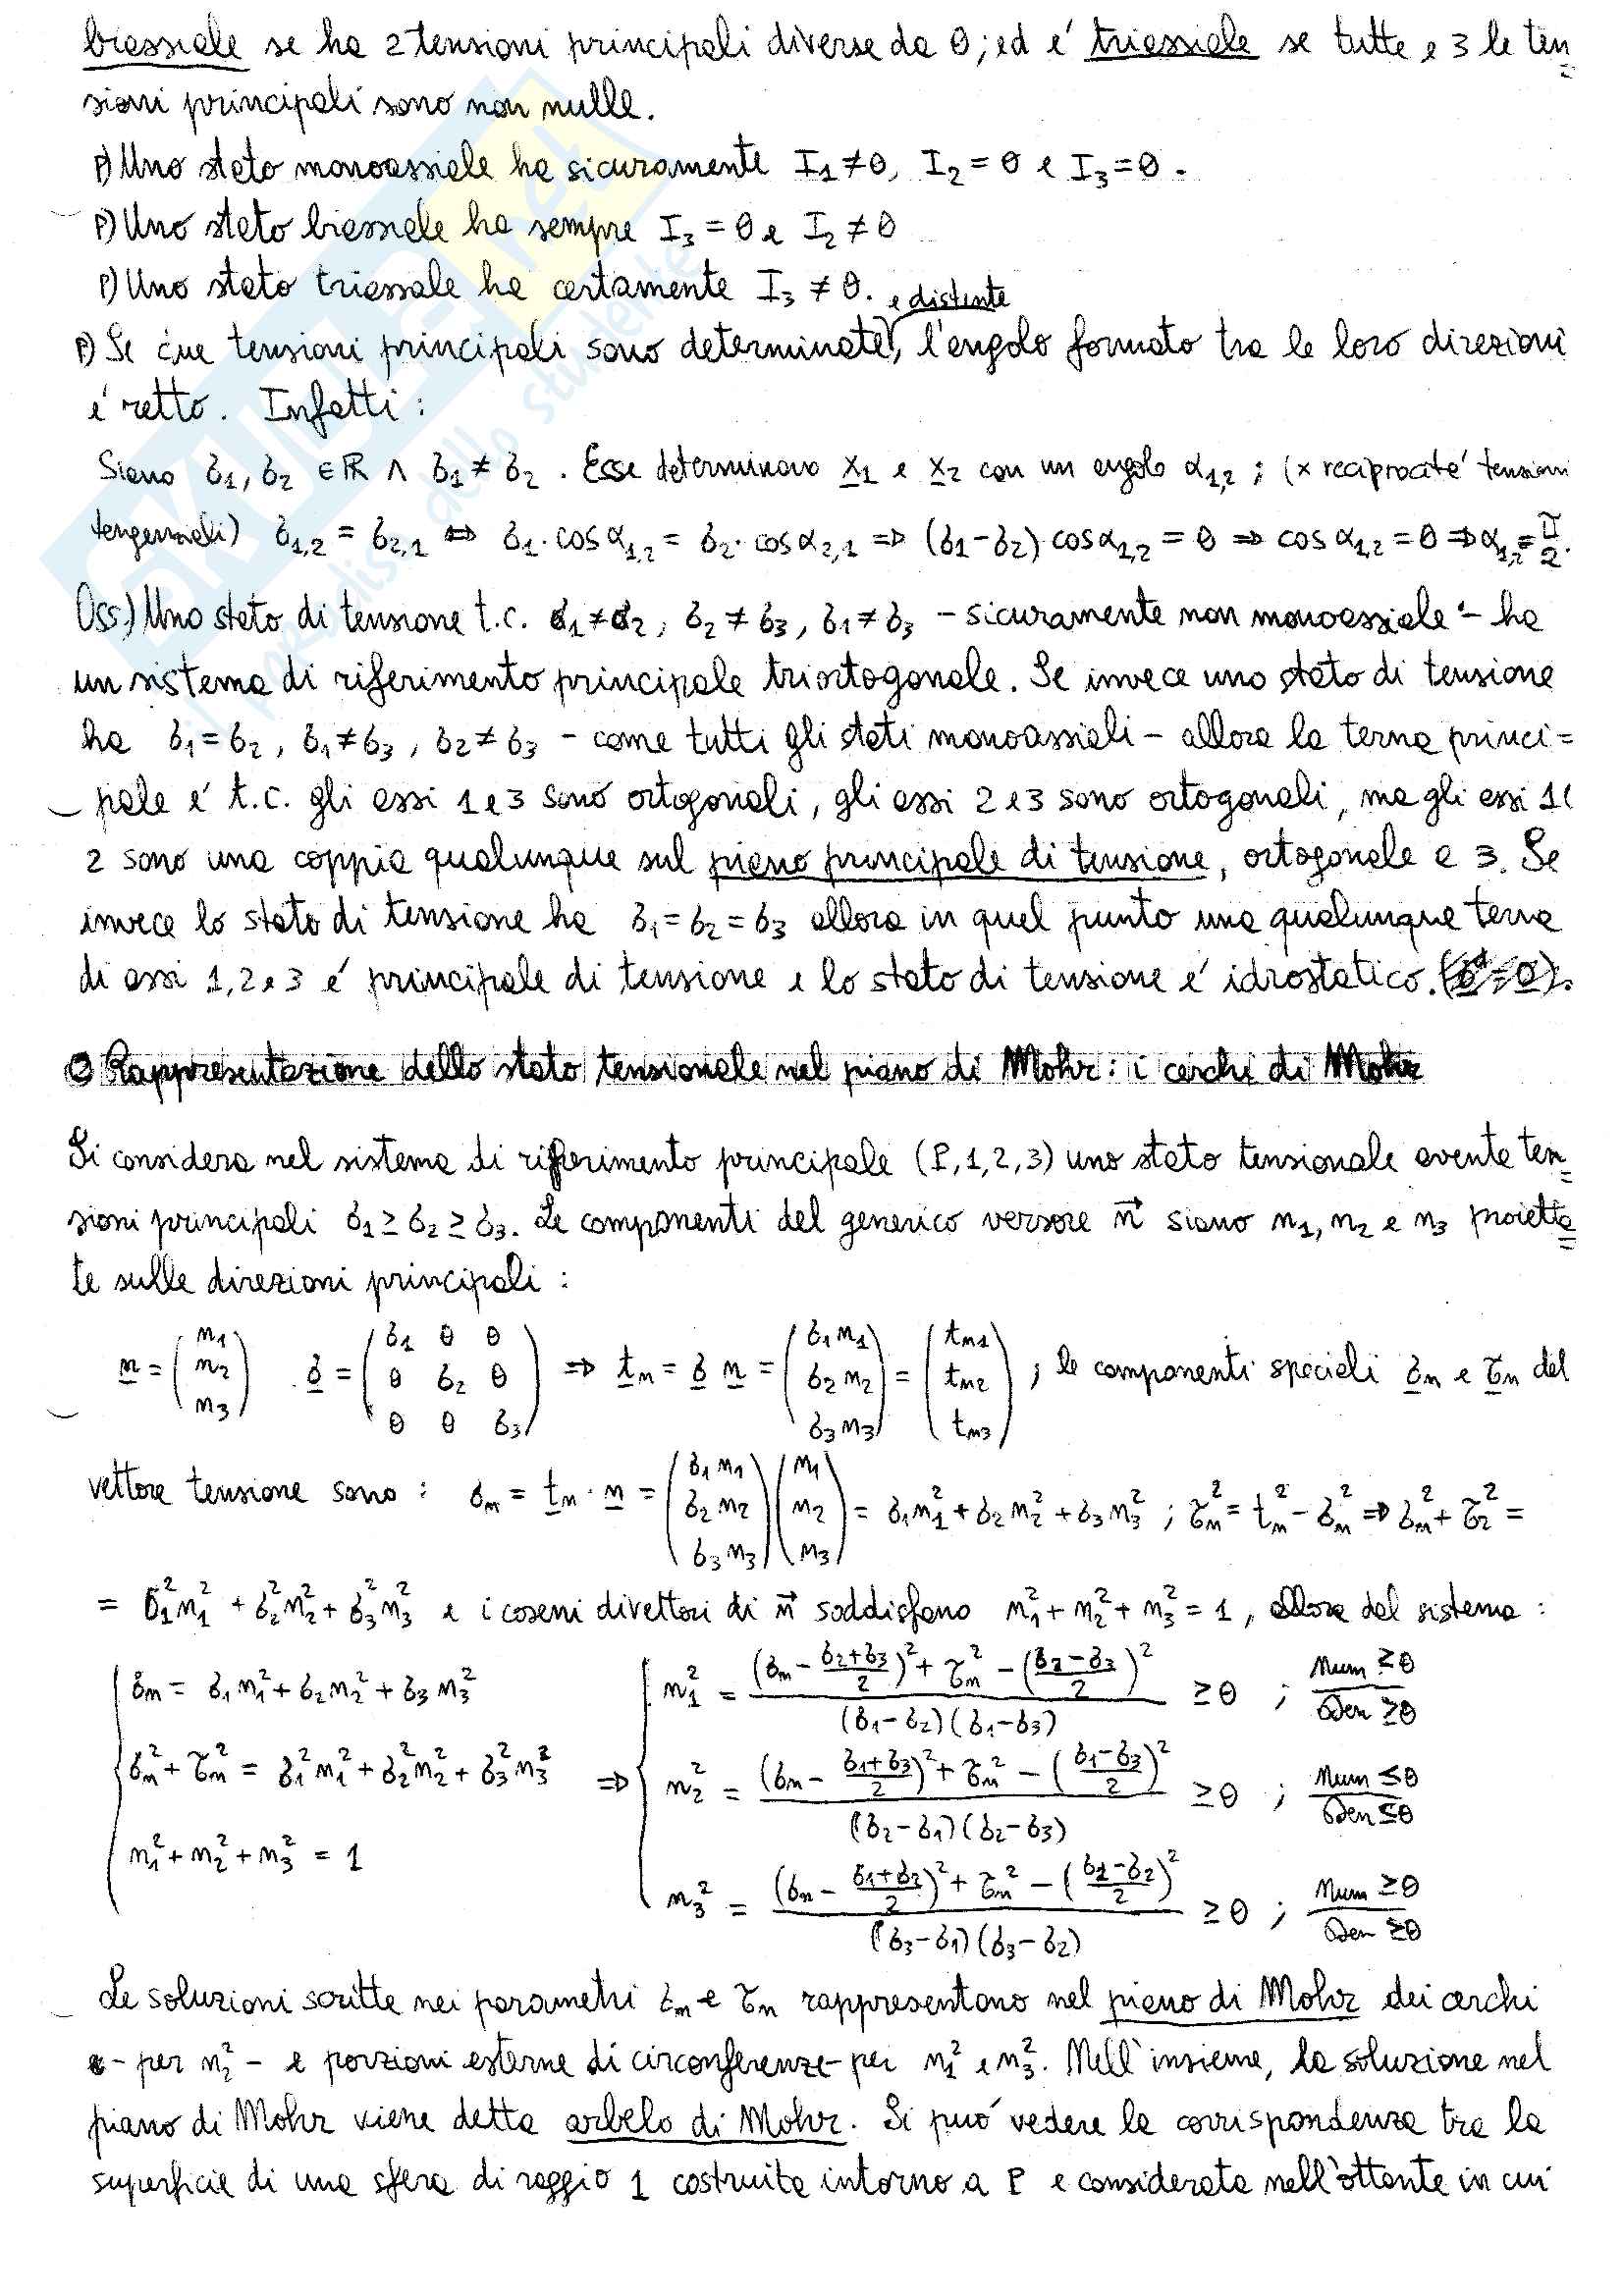 biassiale se ha 2 tensioni principali diverse da 0; ed é triassiale se tutte e 3 le ten=
sioni principali sono non nulle.
P) Uno stato monoassiale ha sicuramente I₁ ≠ 0, I₂ = 0 e I₃ = 0.
P) Uno stato biassiale ha sempre I₃ = 0 e I₂ ≠ 0
P) Uno stato triassale ha certamente I₃ ≠ 0.
e distinte
P) Se due tensioni principali sono determinate, l'angolo formato tra le loro direzioni
é retto. Infatti:
Siano σ₁, σ₂ ∈ ℝ ∧ σ₁ ≠ σ₂. Esse determinano x₁ e x₂ con un angolo α₁,₂; (x reciprocità tensioni
tangenziali) σ₁,₂ = σ₂,₁ ⇔ σ₁·cos α₁,₂ = σ₂·cos α₂,₁ ⇒ (σ₁-σ₂) cos α₁,₂ = 0 ⇒ cos α₁,₂ = 0 ⇒ α₁,₂ = π/2.
Oss) Uno stato di tensione t.c. σ₁ ≠ σ₂, σ₂ ≠ σ₃, σ₁ ≠ σ₃ - sicuramente non monoassiale - ha
un sistema di riferimento principale triortogonale. Se invece uno stato di tensione
ha σ₁ = σ₂, σ₁ ≠ σ₃, σ₂ ≠ σ₃ - come tutti gli stati monoassiali - allora la terna princi=
pale é t.c. gli assi 1 e 3 sono ortogonali, gli assi 2 e 3 sono ortogonali, ma gli assi 1 e
2 sono una coppia qualunque sul piano principale di tensione, ortogonale a 3. Se
invece lo stato di tensione ha σ₁ = σ₂ = σ₃ allora in quel punto una qualunque terna
di assi 1, 2 e 3 é principale di tensione e lo stato di tensione é idrostatico.
Rappresentazione dello stato tensionale nel piano di Mohr: i cerchi di Mohr
Si considera nel sistema di riferimento principale (P,1,2,3) uno stato tensionale avente ten=
sioni principali σ₁ ≥ σ₂ ≥ σ₃. Le componenti del generico versore n⃗ siano n₁, n₂ e n₃ proietta=
te sulle direzioni principali:
n = (n₁ n₂ n₃) σ = (σ₁ 0 0 0 σ₂ 0 0 0 σ₃) ⇒ tₙ = σ n = (σ₁n₁ σ₂n₂ σ₃n₃) = (tₙ₁ tₙ₂ tₙ₃); le componenti speciali σₙ e τₙ del
vettore tensione sono: σₙ = tₙ · n = (σ₁n₁ σ₂n₂ σ₃n₃)(n₁ n₂ n₃) = σ₁n₁² + σ₂n₂² + σ₃n₃²; τₙ² = tₙ² - σₙ² ⇒ σₙ² + τ₂² =
= σ₁²n₁² + σ₂²n₂² + σ₃²n₃² e i coseni direttori di n⃗ soddisfano n₁² + n₂² + n₃² = 1, allora dal sistema:
σₙ = σ₁n₁² + σ₂n₂² + σ₃n₃² n₁² = ((σₙ - (σ₂+σ₃)/2)² + τₙ² - ((σ₂-σ₃)/2)²) / ((σ₁-σ₂)(σ₁-σ₃)) ≥ 0 ; Num ≥0 / Den ≥0
σₙ² + τₙ² = σ₁²n₁² + σ₂²n₂² + σ₃²n₃² ⇒ n₂² = ((σₙ - (σ₁+σ₃)/2)² + τₙ² - ((σ₁-σ₃)/2)²) / ((σ₂-σ₁)(σ₂-σ₃)) ≥ 0 ; Num ≤0 / Den ≤0
n₁² + n₂² + n₃² = 1 n₃² = ((σₙ - (σ₁+σ₂)/2)² + τₙ² - ((σ₁-σ₂)/2)²) / ((σ₃-σ₁)(σ₃-σ₂)) ≥ 0 ; Num ≥0 / Den ≥0
Le soluzioni scritte nei parametri σₙ e τₙ rappresentano nel piano di Mohr dei cerchi
- per n₂² - e porzioni esterne di circonferenze - per n₁² e n₃². Nell'insieme, la soluzione nel
piano di Mohr viene detta arbelo di Mohr. Si puó vedere la corrispondenza tra la
superficie di una sfera di raggio 1 costruita intorno a P e considerata nell'ottante in cui